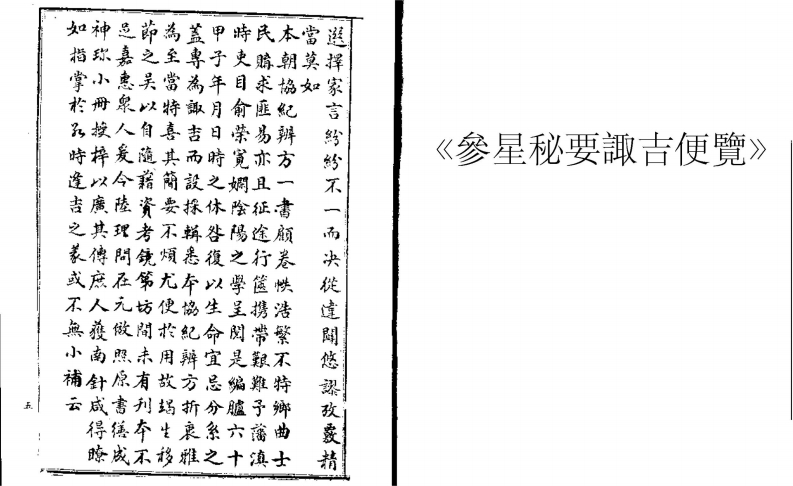 《參星秘要諏吉便覽》
選擇家言紛紛不一而决從違闢悠謬攷覈精
當莫如
本朝協紀辨方一書顧卷帙浩繁不特鄉曲士
民購求匪易亦且征途行篋携帶艱難予藩滇
時吏目俞榮寬嫺陰陽之學呈閱是編臚六十
甲子年月日時之休咎復以生命宜忌分系之
蓋專為諏吉而設採輯悉本協紀辨方折衷雅
為至當特喜其簡要不煩尤便於用故生移
節之吳以自隨藉資考鏡第坊間未有刊本不
足嘉惠衆人爰令陸理問在元倣照原書繕成
袖珍小冊授梓以廣其傳庶人獲南針咸得瞭
如指掌於以時逢吉之義或不無小補云
五